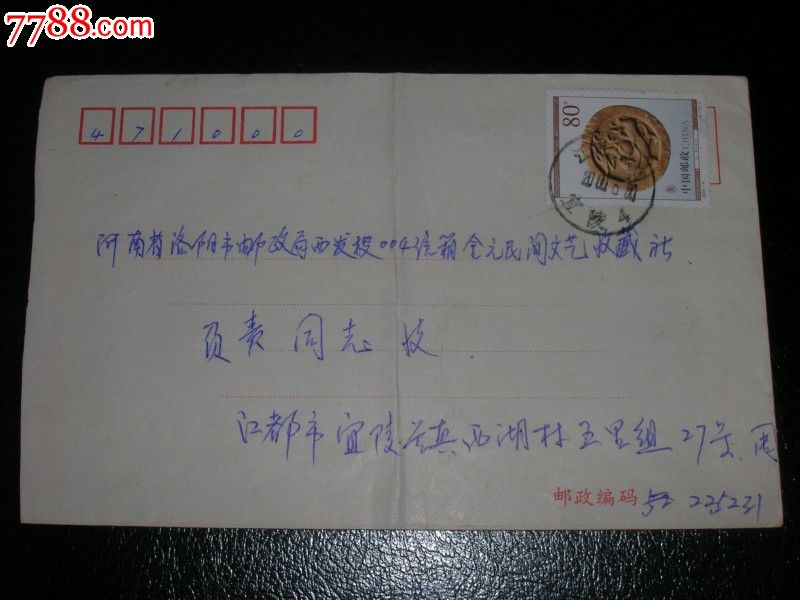 7788.com
中国收藏热线
471000
80分
中国邮政 CHINA
江
宜陵
河南省洛阳市邮政局西发投004信箱全元民间文艺收藏社
负责同志 收
江都市宜陵镇西湖村五里组27号、周
邮政编码 225231